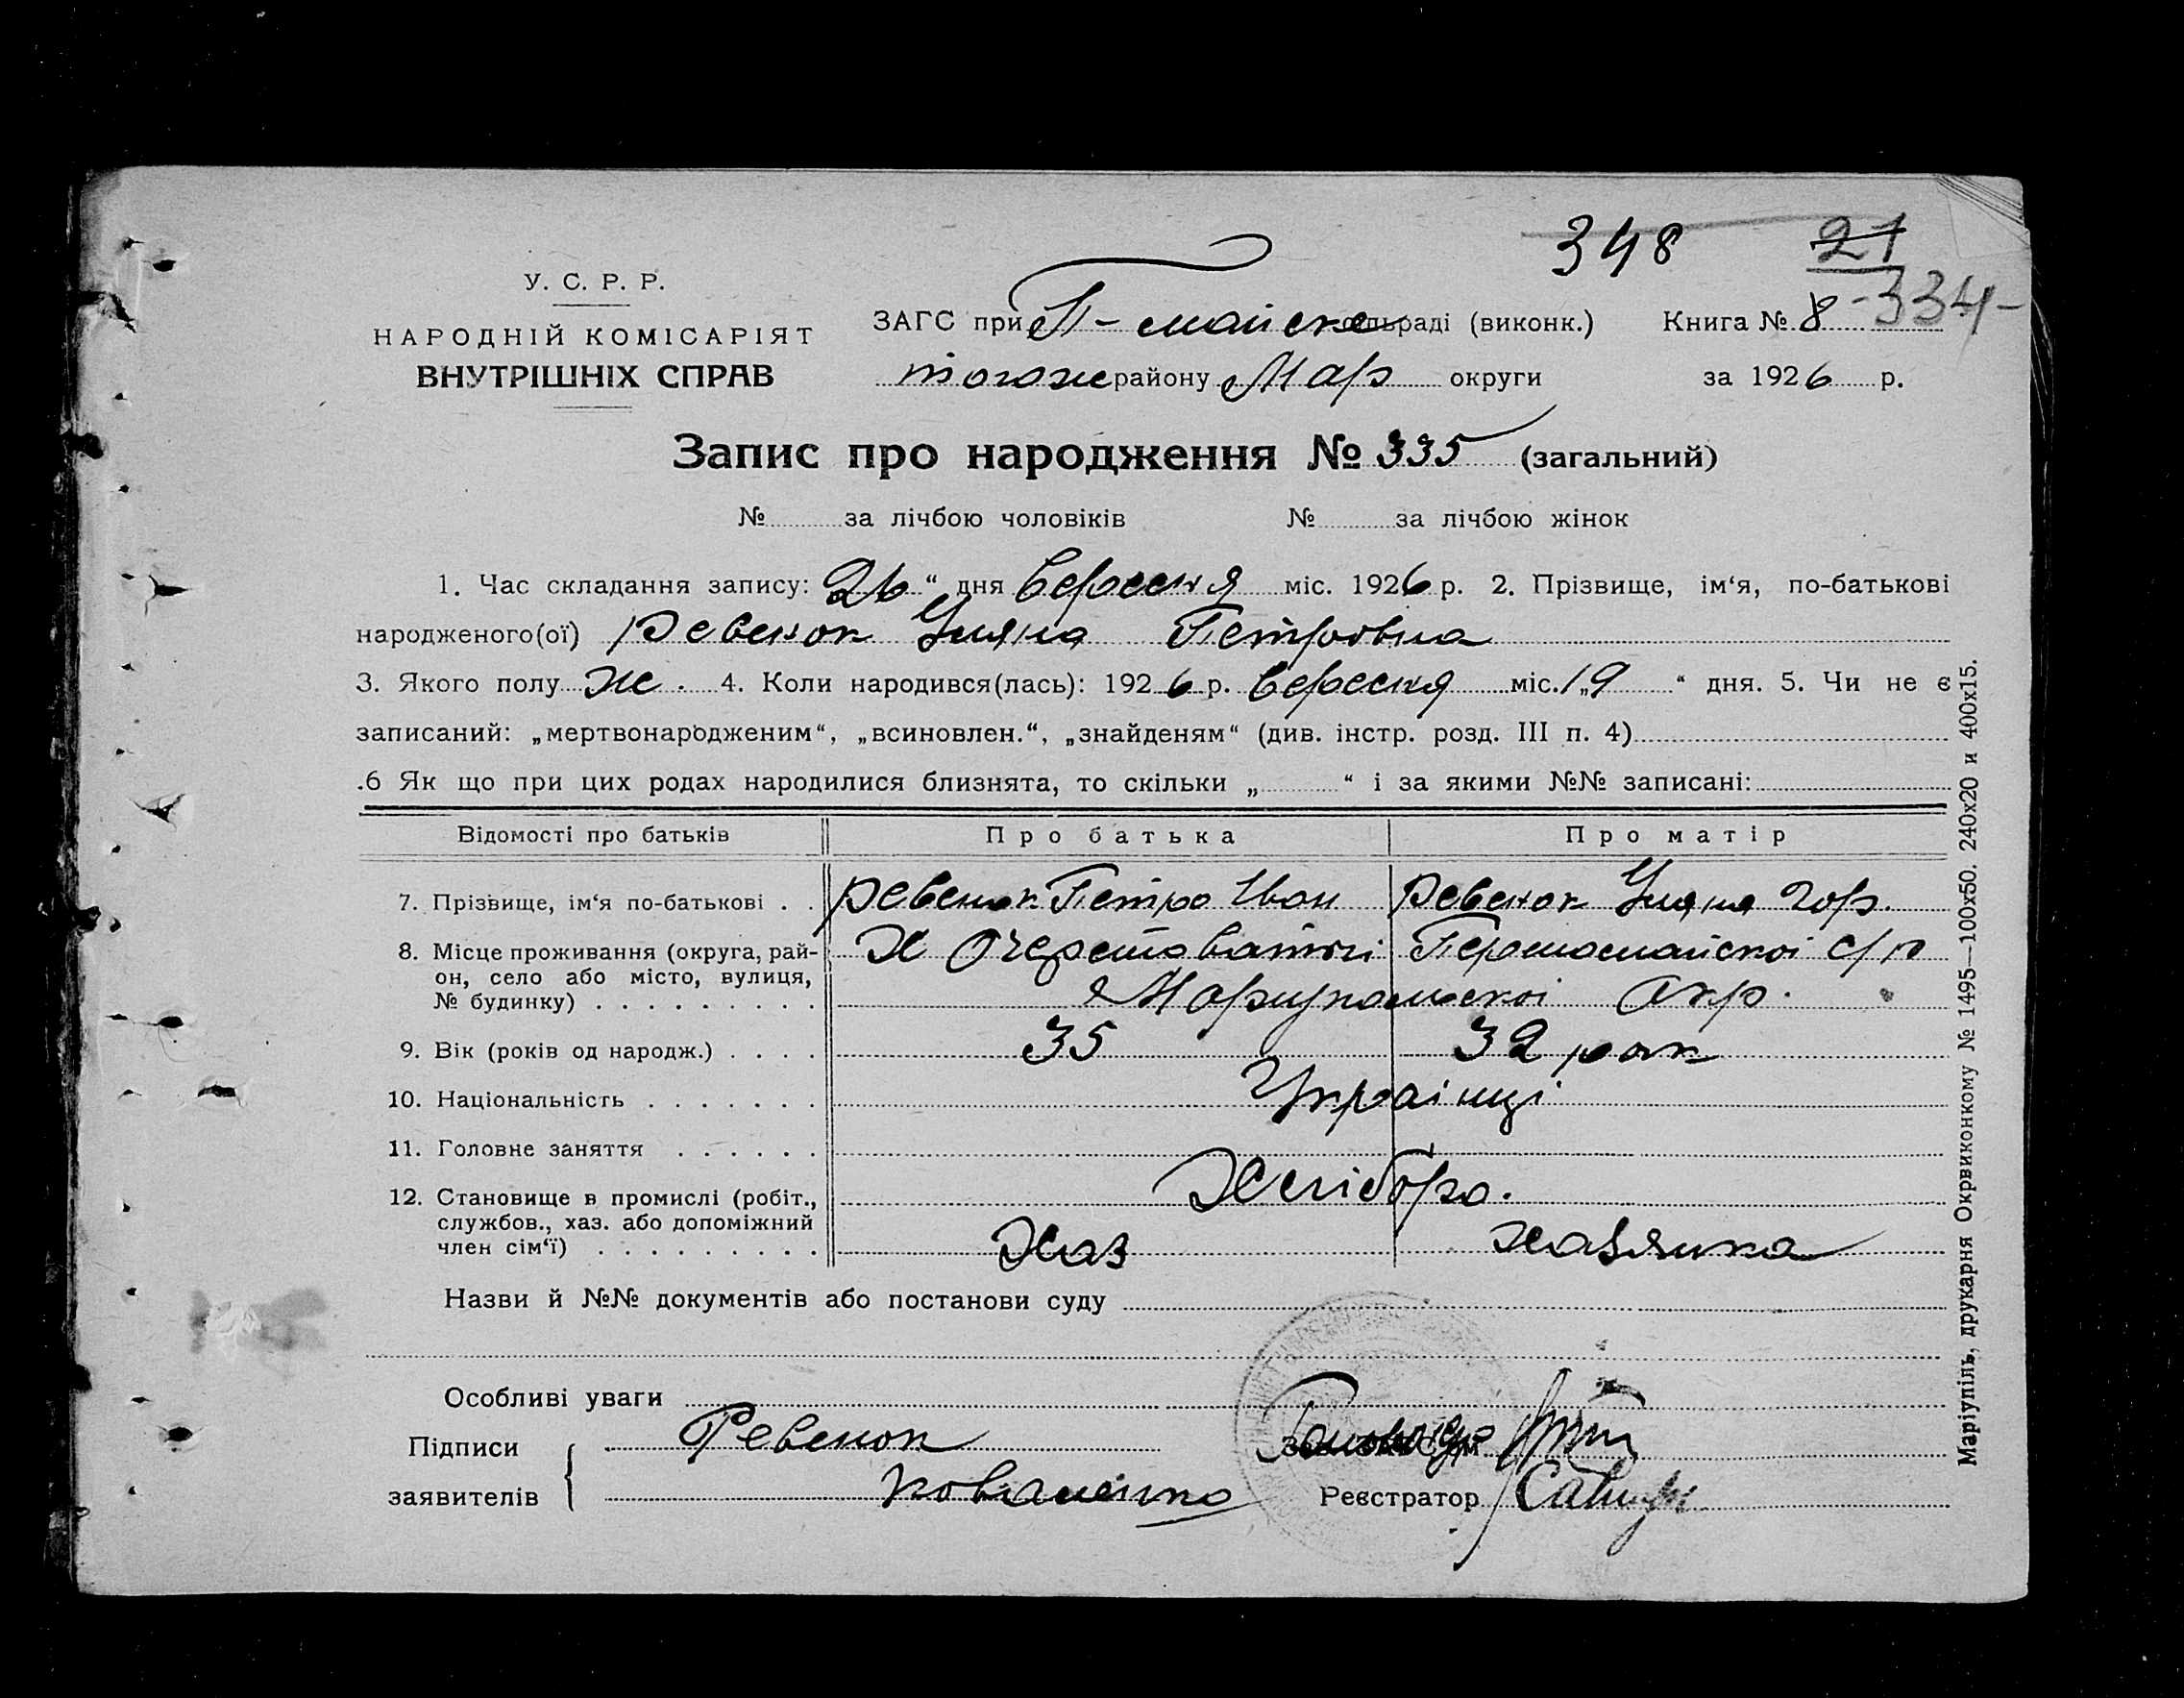 348 21
У. С. Р. Р.
ЗАГС при П-майске сельраді (виконк.) Книга № 8 -334-
НАРОДНІЙ КОМІСАРІЯТ
ВНУТРІШНІХ СПРАВ
тогоже району Мар округи за 1926 р.
Запис про народження № 335 (загальний)
№ за лічбою чоловіків № за лічбою жінок
1. Час складання запису: 26 “ дня вересня міс. 1926 р. 2. Прізвище, ім‘я, по-батькові
народженого(ої) Ревенок Уляна Петровна
3. Якого полу Ж. 4. Коли народився(лась): 1926 р. вересня міс. „19 “ дня. 5. Чи не є
записаний: „мертвонародженим“, „всиновлен.“, „знайденям“ (див. інстр. розд. III п. 4)
.6 Як що при цих родах народилися близнята, то скільки „ “ і за якими №№ записані:
Відомості про батьків Про батька Про матір
7. Прізвище, ім‘я по-батькові . . Ревенок Петро Иван Ревенок Уляна Гор.
8. Місце проживання (округа, рай-
он, село або місто, вулиця,
№ будинку) . . . . . . . . .
Х Очеретоватий Першомайскоі с/р
Мариупольскоі Окр.
9. Вік (років од народж.) . . . . 35 32 рок
10. Національність . . . . . . . Украінці
11. Головне заняття . . . . . .
Хлібор.
12. Становище в промислі (робіт.,
службов., хаз. або допоміжний
член сім‘ї) . . . . . . . . .
Хаз хазяика
Назви й №№ документів або постанови суду
Особливі уваги
Підписи
заявителів
Ревенок
Коваленко
Реєстратор
Маріупіль, друкарня Окрвиконкому № 1495—100х50. 240х20 и 400х15.